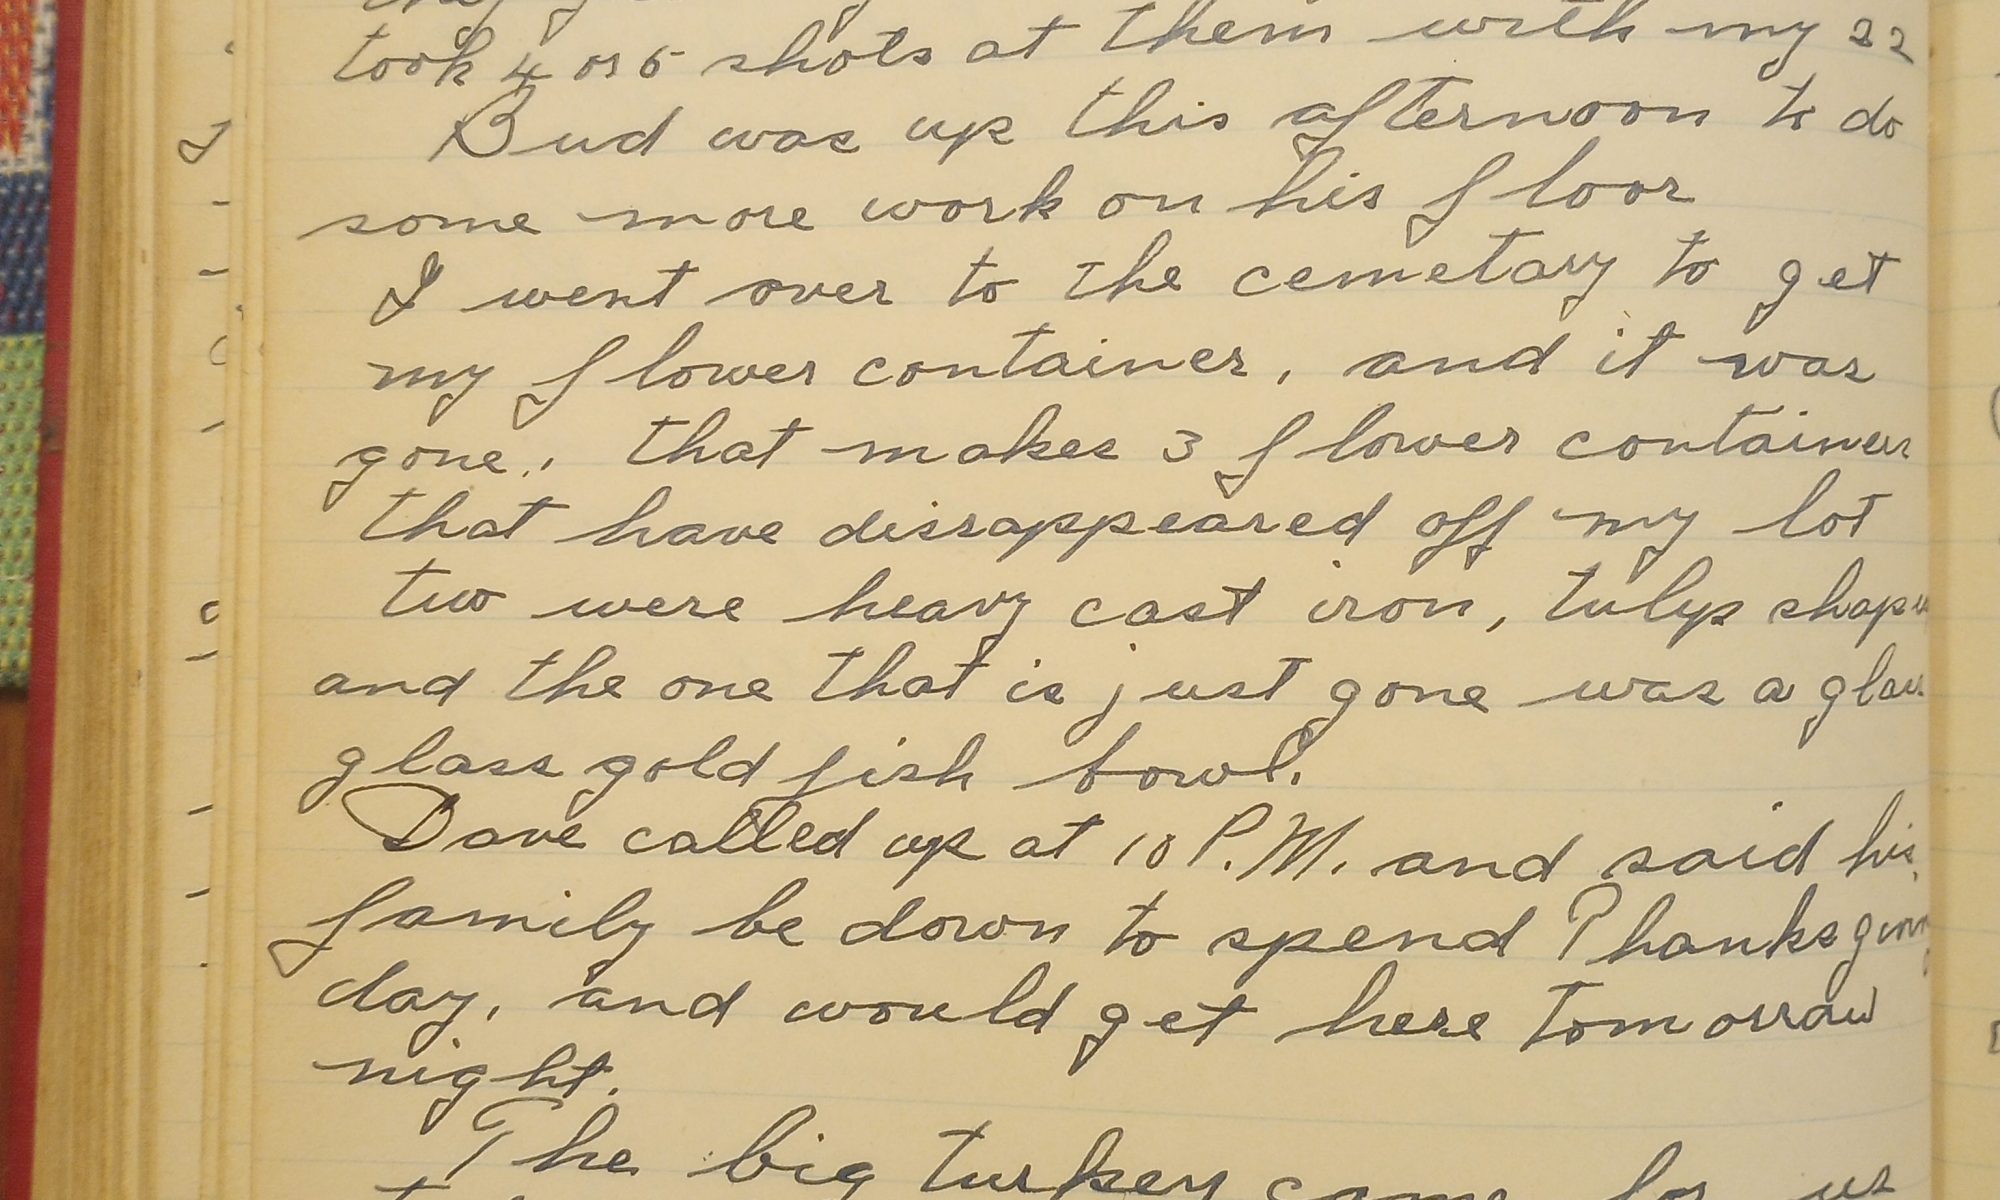 took 4 or 5 shots at them with my 22
Bud was up this afternoon to do
some more work on his floor
I went over to the cemetary to get
my flower container, and it was
gone. that makes 3 flower containers
that have dissappeared off my lot
two were heavy cast iron, tulip shape
and the one that is just gone was a glass
glass gold fish bowl.
Dave called up at 10 P.M. and said his
family be down to spend Thanksgiving
day, and would get here tomorraw
night.
The big turkey came for us